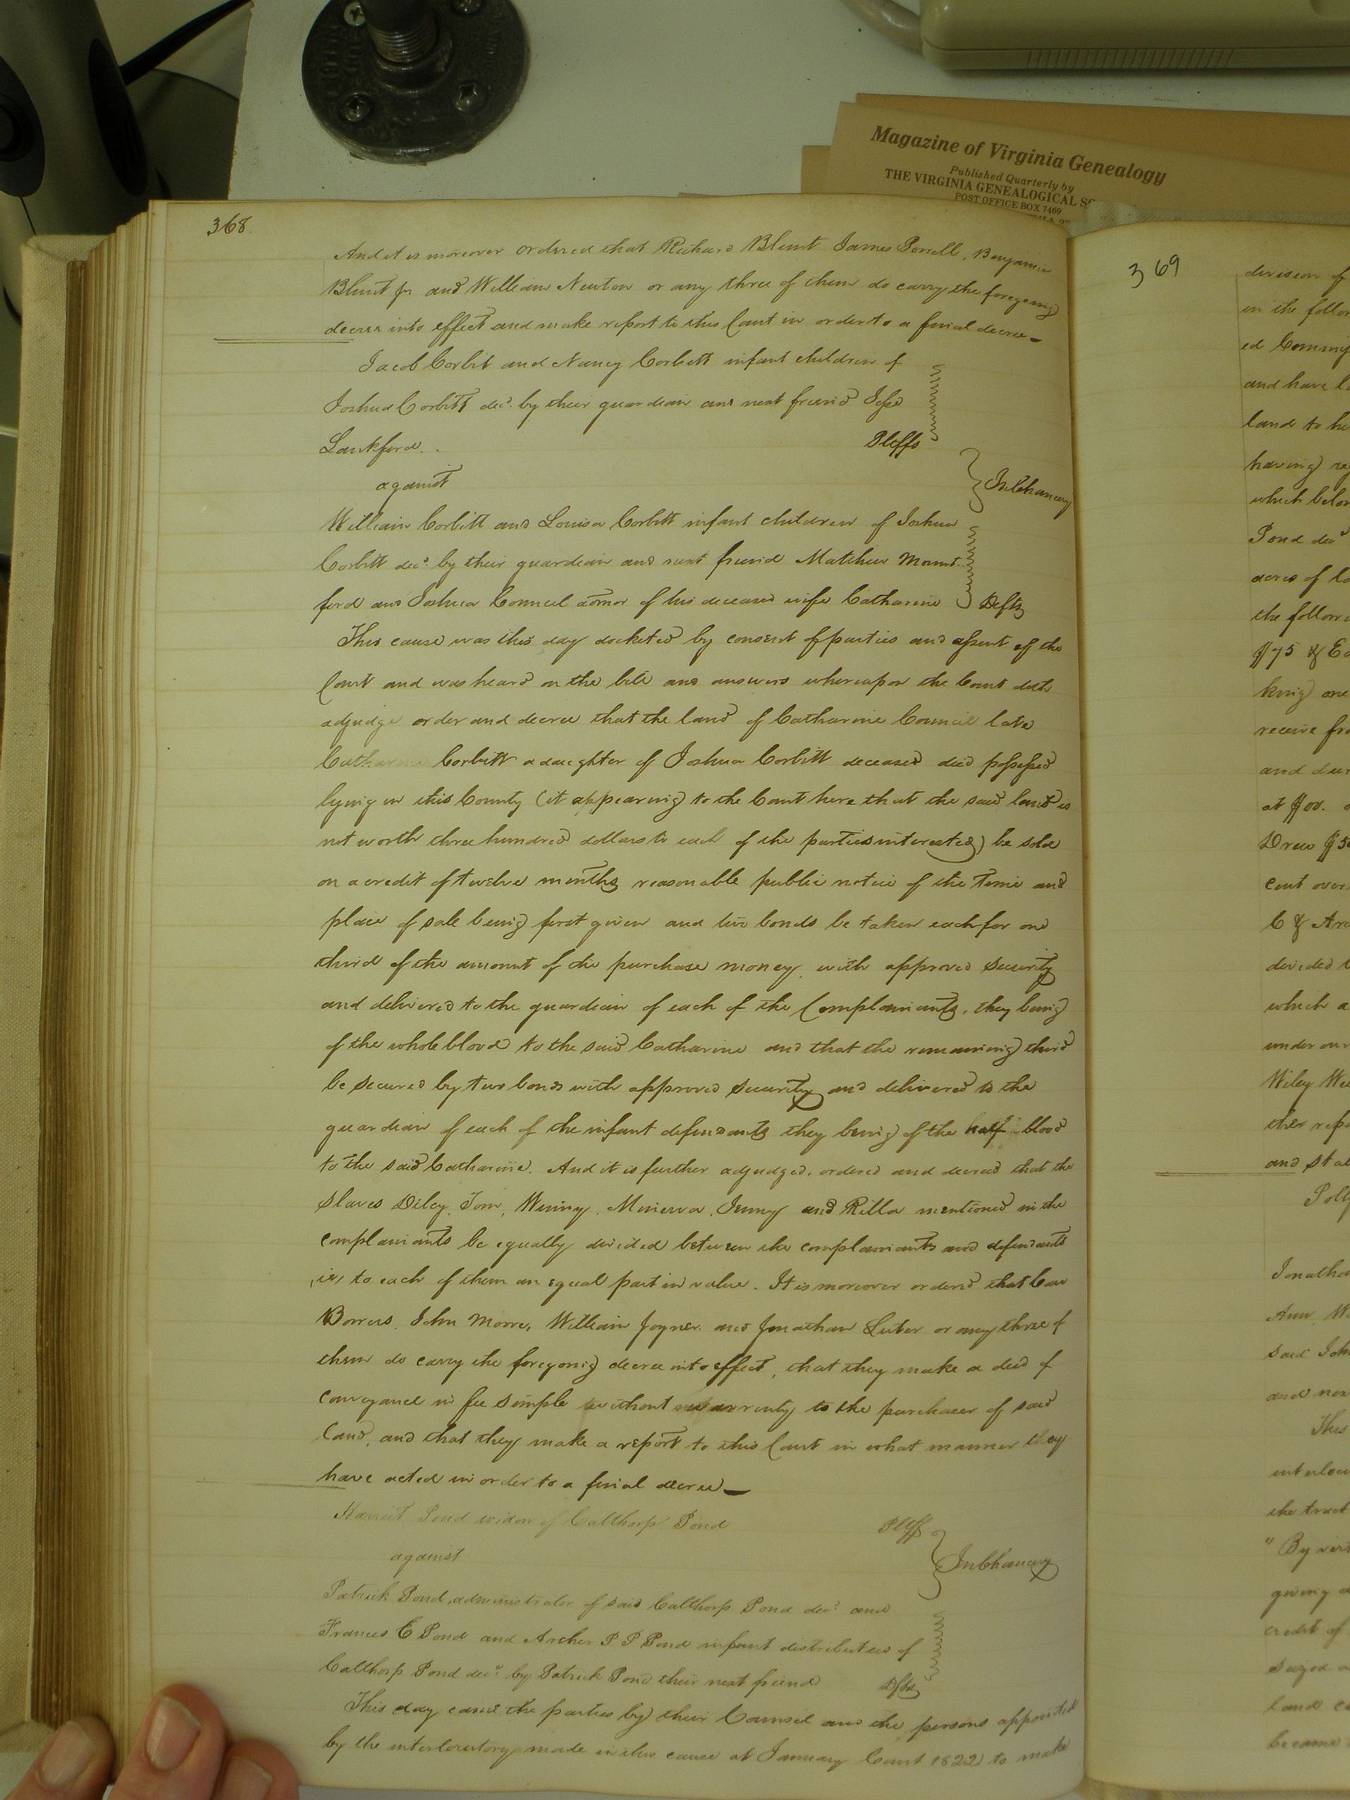 Magazine of Virginia Genealogy
Published Quarterly by
THE VIRGINIA GENEALOGICAL SO
POST OFFICE BOX 7469
368
And it is moreover ordered that Richard Blunt James Powell, Benjamin
Blunt Jr. and William Newton or any three of them do carry the foregoing
decree into effect and make report to this Court in order to a final decree
Jacob Corbit and Nancy Corbitt infant children of
Joshua Corbitt decd. by their guardian and next friend Jesse
Lankford. Pleffs
against
In Chancery
William Corbitt and Louisa Corbitt infant children of Joshua
Corbitt decd. by their guardian and next friend Matthew Mount
ford and Joshua Council admor of his deceased wife Catharine Defts
This cause was this day docketed by consent of parties and assent of the
Court and was heard on the bill and answers whereupon the Court doth
adjudge order and decree that the land of Catharine Council late
Catharine Corbitt a daughter of Joshua Corbitt deceased died possessed
lying in this County (it appearing to the Court here that the said land is
not worth three hundred dollars to each of the parties interested) be sold
on a credit of twelve months reasonable public notice of the time and
place of sale being first given and two bonds be taken each for one
third of the amount of the purchase money, with approved security
and delivered to the guardian of each of the Complainants, they being
of the whole blood to the said Catharine and that the remaining third
be secured by two bonds with approved security and delivered to the
guardian of each of the infant defendants they being of the half blood
to the said Catharine. And it is further adjudged, ordered and decreed that the
Slaves Dilcy, Tom, Winny, Minerva, Jenny and Rilla mentioned in the
complainants be equally divided between the complainants and defendants
, to each of them an equal part in value. It is moreover ordered that
John Moore, William Joyner and Jonathan or any three of
them do carry the foregoing decree into effect, that they make a deed of
conveyance in fee simple without warrenty to the purchaser of said
Land, and that they make a report to this Court in what manner they
have acted in order to a final decree
Harriet Pond widow of Calthorp Pond Pleff
against
In Chancery
Patrick Pond, administrator of said Calthorp Pond decd. and
Frances E Pond and Archer P P Pond infant distributees of
Calthorp Pond decd. by Patrick Pond their next friend Defts
This day came the parties by their Counsel and the persons appointed
by the interlocutory made in this cause at January Court 1822 to make
369
division of
in the follow
ed Commis
and have l
land to he
having re
which belon
Pond decd
acres of la
the follow
$75 & E
king one
receive fr
and
at $
Drew $5
cent over
C & Arc
divided
which a
under our
Wiley We
their repo
and sta
Polly
Jonatha
Ann W
said Joh
and nex
This
interlocu
the tract
" By vir
giving
credit of
land
became